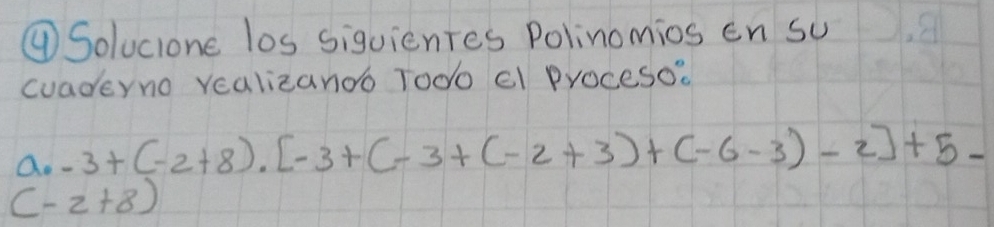 ④ Solucione los siguientes Polinomios en su
cuaderno realizando Todo el proceso:
a. -3+(-2+8).[-3+(-3+(-2+3)+(-6-3)-2]+5-
(-2+8)